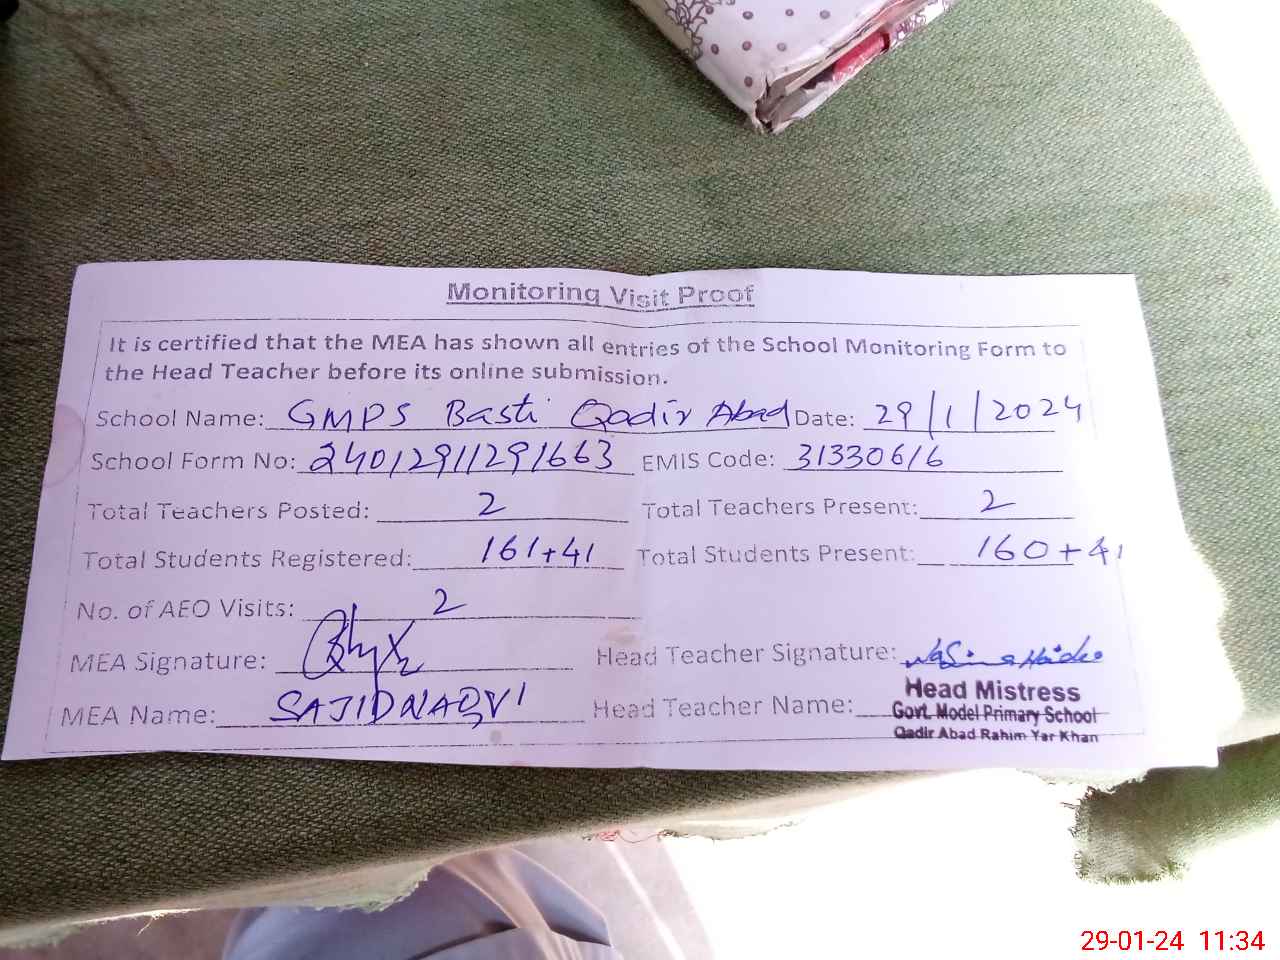 Monitoring Visit Proof
It is certified that the MEA has shown all entries of the School Monitoring Form to
the Head Teacher before its online submission.
School Name: GMPS Basti Qadir Abad Date: 29/1/2024
School Form No: 2401291129 1663 EMIS Code: 31330616
Total Teachers Posted: 2 Total Teachers Present: 2
Total Students Registered: 161+41 Total Students Present: 160+41
No. of AEO Visits: 2
MEA Signature: Head Teacher Signature:
MEA Name: SAJID NAQVI Head Teacher Name:
Head Mistress
Govt. Model Primary School
Qadir Abad Rahim Yar Khan
29-01-24 11:34